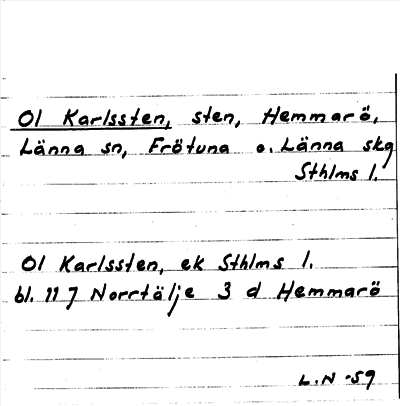 Ol Karlssten, sten, Hemmarö,
Länna sn, Frötuna o. Länna skg
Sthlms l.
Ol Karlssten, ek Sthlms l.
bl. 117 Norrtälje 3 d Hemmarö
L.N -59